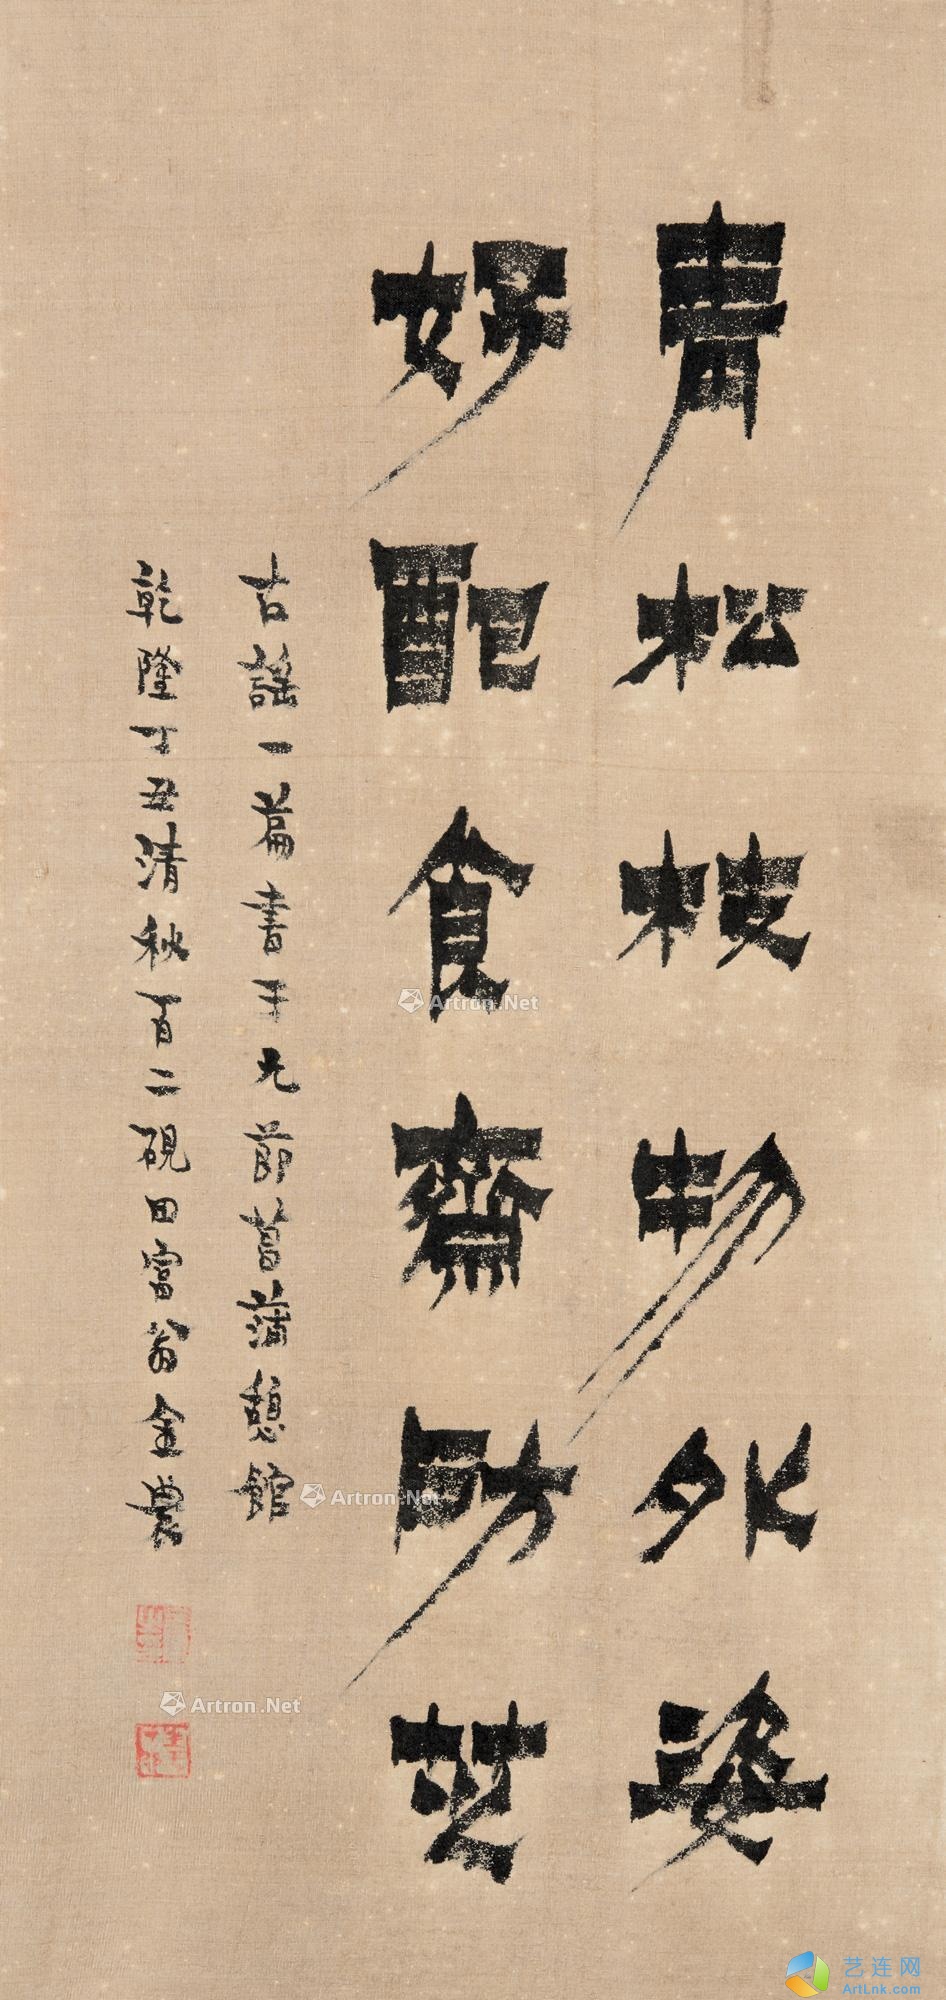 青松枝物外姿
好配食齋防芝
古謠一篇書于元節菖蒲憩館
乾隆丁丑清秋百二硯田富翁金農
Artron.Net
Artron.Net
Artron.Net
艺连网
ArtLnk.com